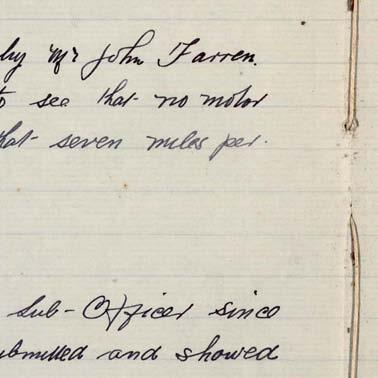 by Mr John Farren.
to see that no motor
that seven miles per.
Sub-Officer since
submitted and showed